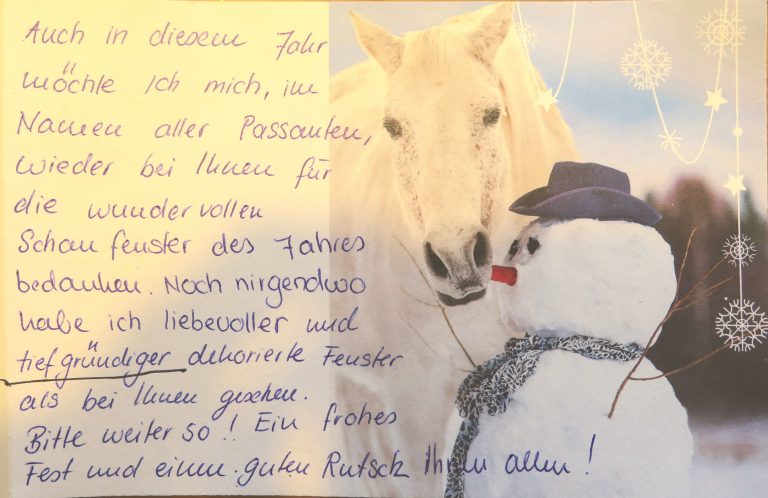 Auch in diesem Jahr
möchte ich mich, im
Namen aller Passanten,
wieder bei Ihnen für
die wundervollen
Schaufenster des Jahres
bedanken. Noch nirgendwo
habe ich liebevoller und
tiefgründiger dekorierte Fenster
als bei Ihnen gesehen.
Bitte weiter so!! Ein frohes
Fest und einen guten Rutsch Ihnen allen!